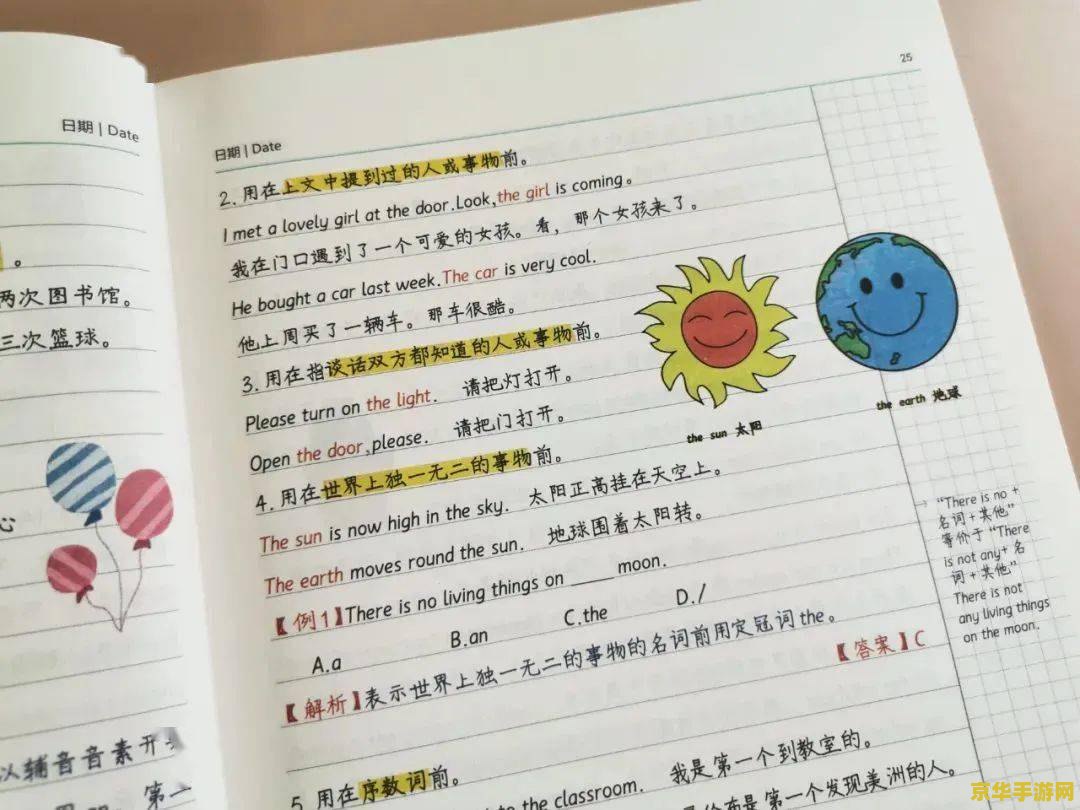 日期 | Date
。
两次图书馆。
三次篮球。
心
以辅音音素开
第一
25
日期 | Date
2. 用在上文中提到过的人或事物前。
I met a lovely girl at the door.Look,the girl is coming。
我在门口遇到了一个可爱的女孩。看，那个女孩来了。
He bought a car last week.The car is very cool.
他上周买了一辆车。那车很酷。
3. 用在指谈话双方都知道的人或事物前。
Please turn on the light. 请把灯打开。
Open the door,please. 请把门打开。
4. 用在世界上独一无二的事物前。
The sun is now high in the sky. 太阳正高挂在天空上。
The earth moves round the sun. 地球围着太阳转。
【例1】There is no living things on ____ moon.
A.a B.an C.the D./
【解析】表示世界上独一无二的事物的名词前用定冠词the。
【答案】C
5. 用在序数词前。
to the classroom. 我是第一个到教室的。
第一个发现美洲的人。
the sun 太阳
the earth 地球
"There is no +
名词+其他"
等价于"There
is not any+名
词+其他"
There is not
any living things
on the moon.
京华手游网